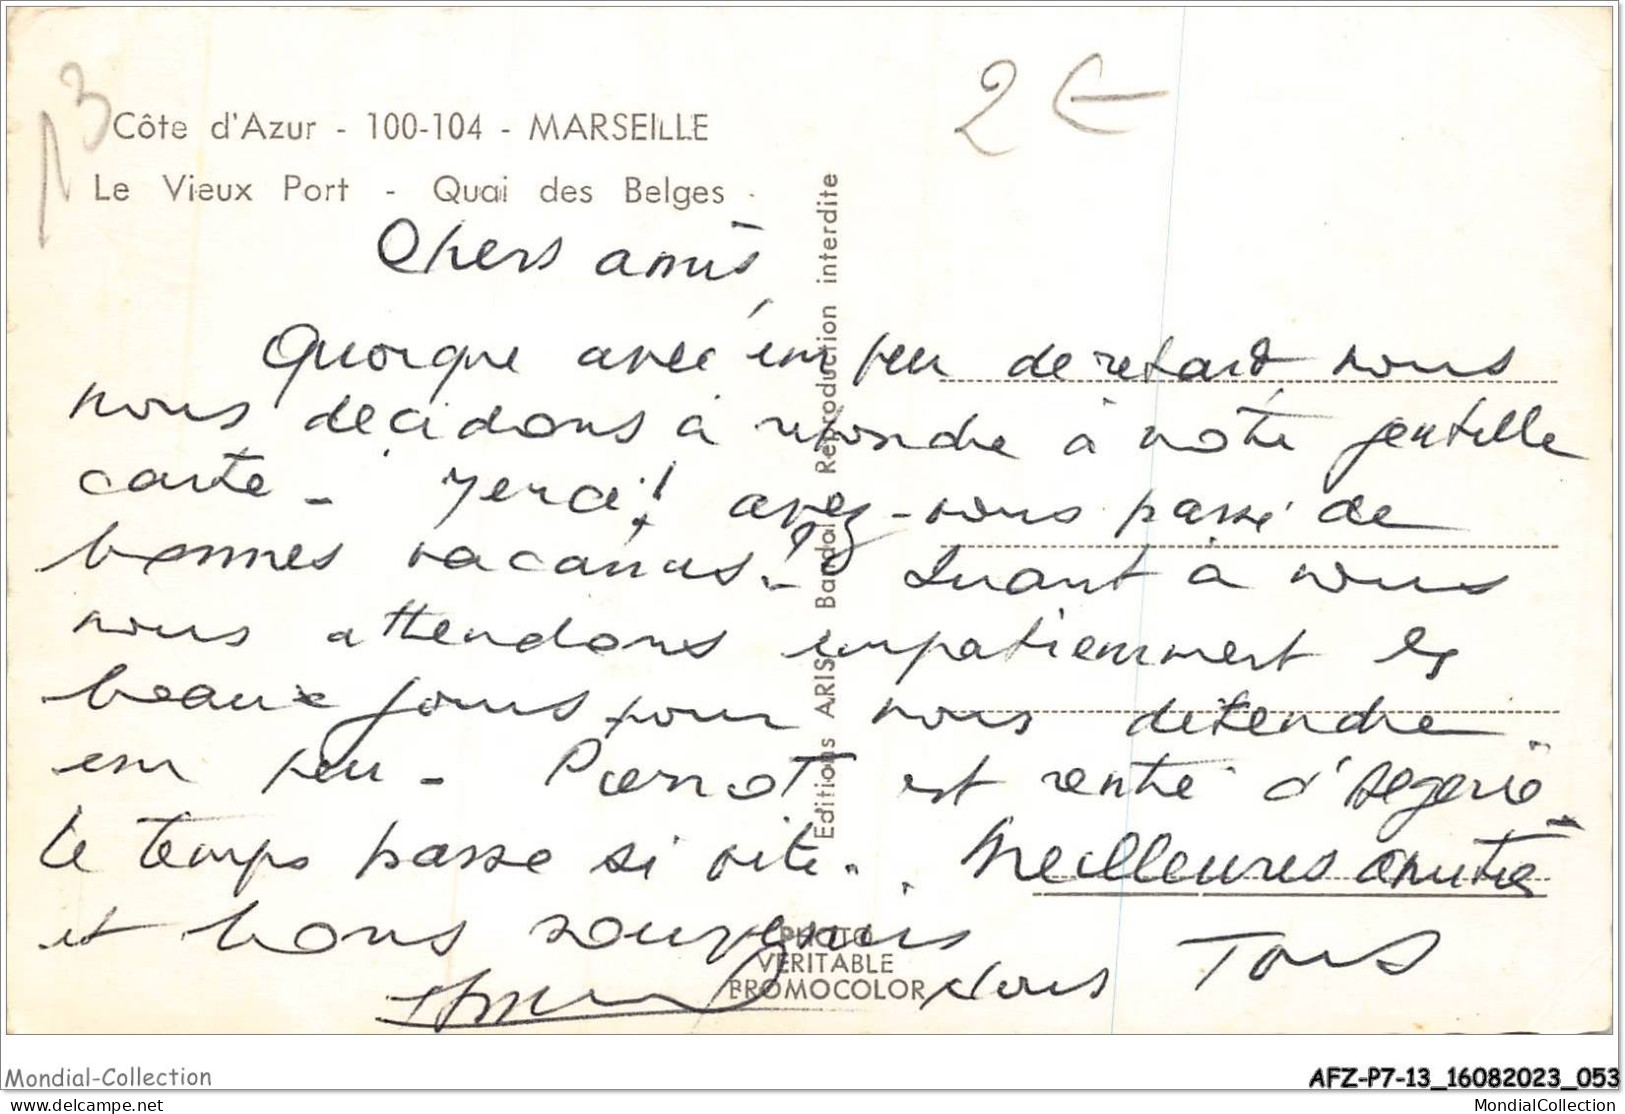 13
2 €
Côte d'Azur - 100-104 - MARSEILLE
Le Vieux Port - Quai des Belges -
Chers amis,
Quoique avec un peu de retard, nous
nous décidons à répondre à votre gentille
carte - Merci! avez-vous passé de
bonnes vacances? Quant à nous
nous attendons impatiemment les
beaux jours pour nous détendre
un peu - Pierrot est rentré d'Algérie -
Le temps passe si vite. Meilleures amitiés
et bons souvenirs
Nous Tous
Editions ARIS - Bandol Reproduction interdite
PHOTO
VERITABLE
BROMOCOLOR
Mondial-Collection
AFZ-P7-13_16082023_053
mondialcollection.delcampe.net
MondialCollection